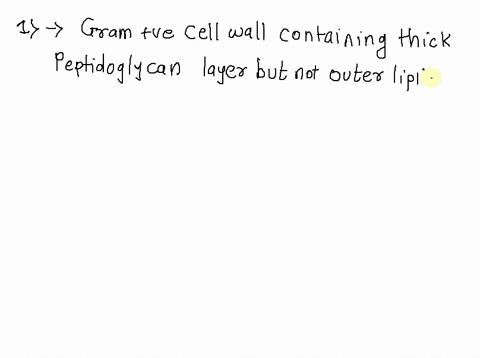 1) → Gram +ve cell wall containing thick
Peptidoglycan layer but not outer lipi